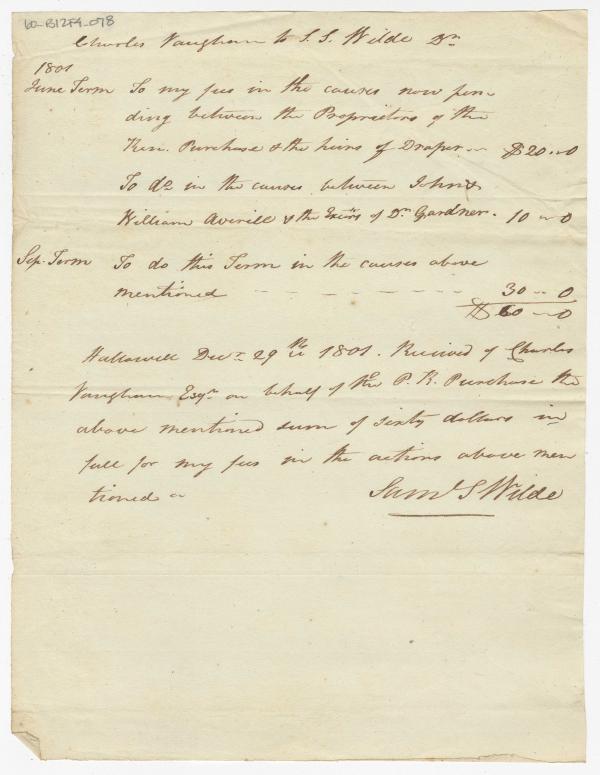 60-B12F4-078
Charles Vaughan to S. S. Wilde Dr
1801
June Term To my fees in the causes now pen
ding between the Proprietors of the
Ken. Purchase & the heirs of Draper $20 0
To do in the causes between John &
William Averill & the Exērs of Dr. Gardner. 10 0
Sep. Term To do this Term in the causes above
mentioned 30 0
$60 0
Hallowell Decr 29th 1801. Received of Charles
Vaughan Esqr on behalf of the P. K. Purchase the
above mentioned sum of sixty dollars in
full for my fees in the actions above men
tioned
Saml S Wilde